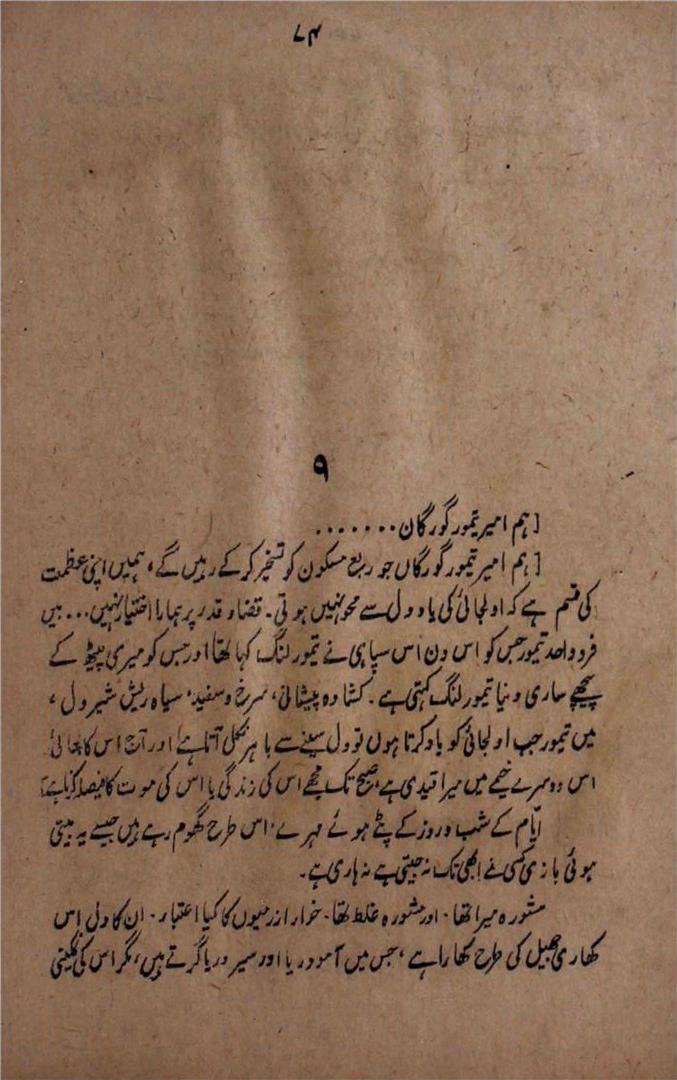 ۷۴
۹
[ہم امیر تیمور گورگان.......
[ہم امیر تیمور گورگاں جو ربع مسکون کو تسخیر کر کے رہیں گے، ہمیں اپنی عظمت
کی قسم ہے کہ اولجائی کی یاد دل سے محو نہیں ہوتی۔ قضا و قدر پر ہمارا اختیار نہیں... میں
فرد واحد تیمور جس کو اس دن اس سپاہی نے تیمور لنگ کہا تھا اور جس کو میری پیٹھ کے
پیچھے ساری دنیا تیمور لنگ کہتی ہے۔ کشادہ پیشانی، سرخ و سفید، سیاہ ریش شیر دل،
میں تیمور جب اولجائی کو یاد کرتا ہوں تو دل سینے سے باہر نکل آتا ہے اور آج اس کا بھائی
اس دوسرے خیمے میں میرا قیدی ہے صبح تک مجھے اس کی زندگی یا اس کی موت کا فیصلہ کرنا ہے]
ایّام کے شب و روز کے پٹے ہوئے مہرے، اس طرح گھوم رہے ہیں جیسے یہ بیتی
ہوئی بازی کسی نے ابھی تک نہ جیتی ہے نہ ہاری ہے۔
مشورہ میرا تھا۔ اور مشورہ غلط تھا۔ خوارزمیوں کا کیا اعتبار۔ ان کا دل اس
کھاری جھیل کی طرح کھارا ہے، جس میں آمو دریا اور سیر دریا گرتے ہیں، مگر اس کی نمکینی